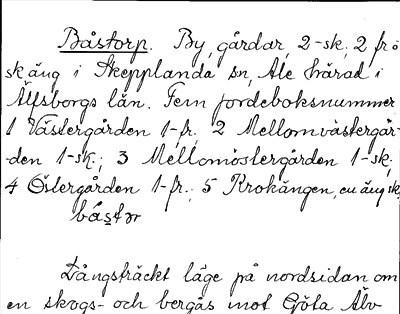 Båstorp. By, gårdar, 2-sk, 2 frö
sk äng i Skepplanda sn, Ale härad i
Älfsborgs län. Fem jordeboksnummer
1 Västergården 1-fr, 2 Mellomvästergår-
den 1-sk; 3 Mellomöstergården 1-sk,
4 Östergården 1-fr. 5 Krokängen, en äng sk.
båstɔr
Långsträckt läge på nordsidan om
en skogs- och bergås mot Göta Älv